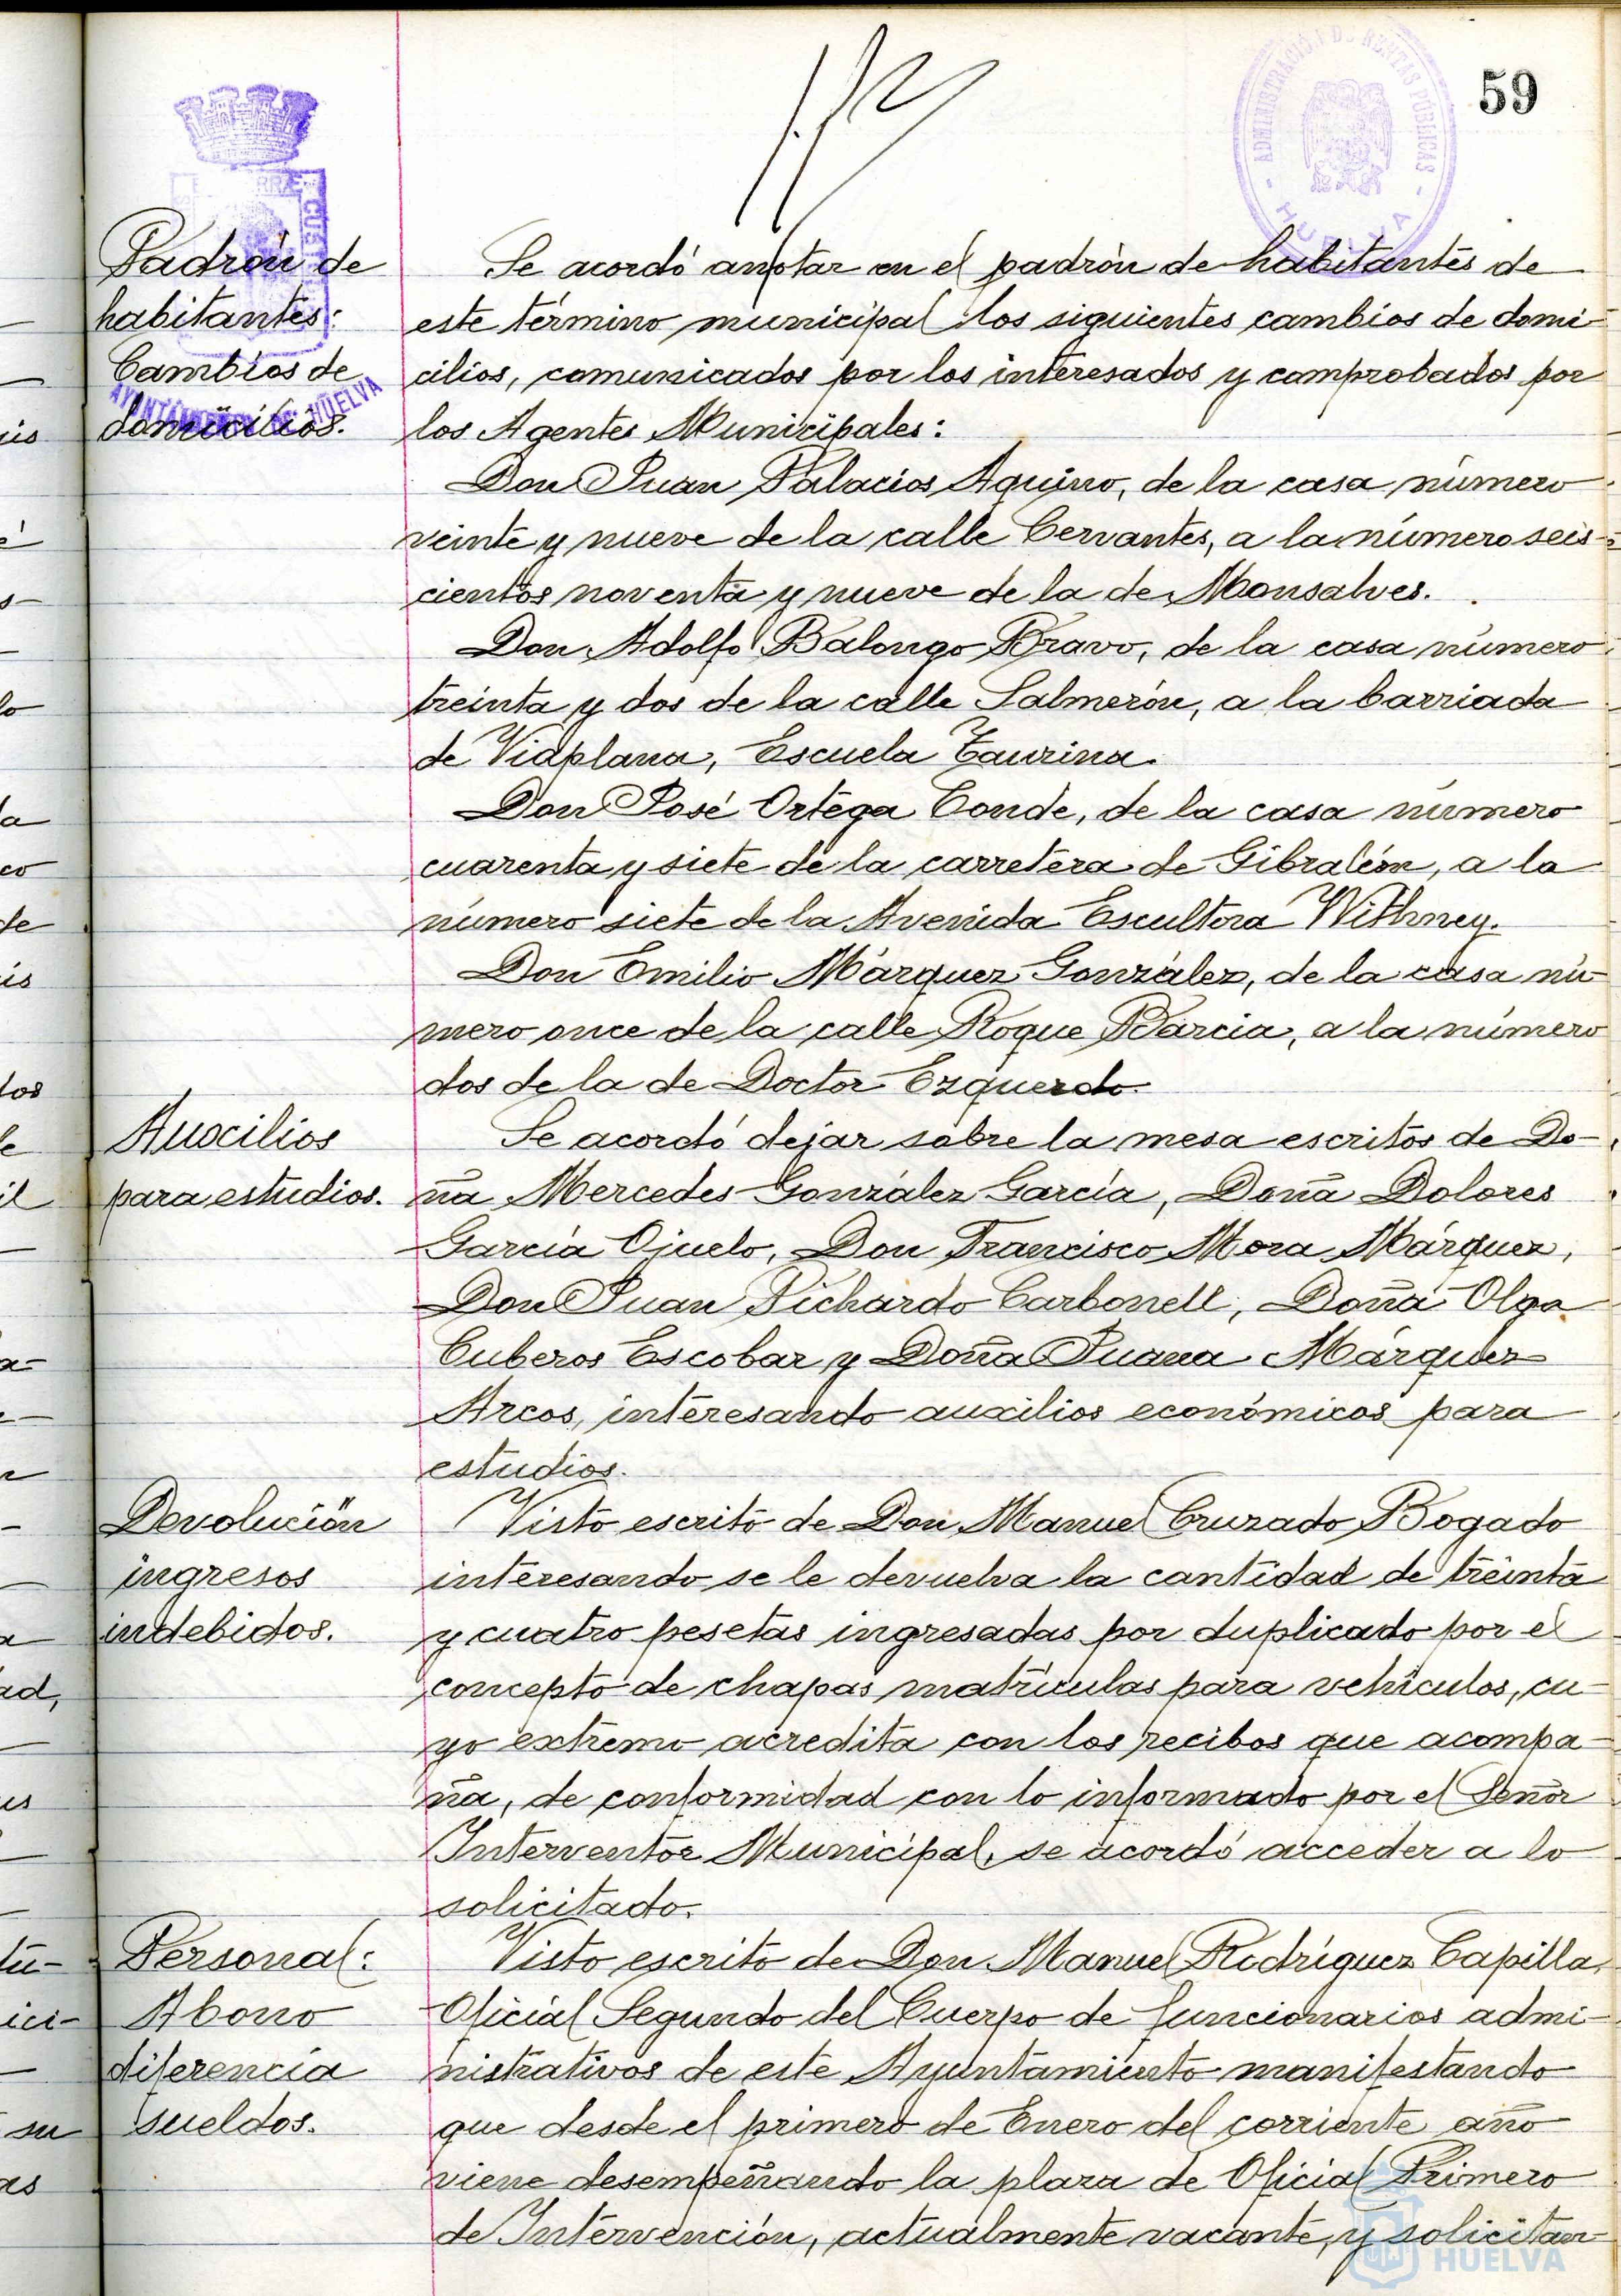 59
ADMINISTRACIÓN DE RENTAS PÚBLICAS
HUELVA
AYUNTAMIENTO DE HUELVA
Padrón de
habitantes:
Cambios de
domicilios.
Se acordó anotar en el padrón de habitantes de
este término municipal los siguientes cambios de domi-
cilios, comunicados por los interesados y comprobados por
los Agentes Municipales:
Don Juan Palacios Aquino, de la casa número
veinte y nueve de la calle Cervantes, a la número seis-
cientos noventa y nueve de la de Monsalves.
Don Adolfo Balongo Bravo, de la casa número
treinta y dos de la calle Salmerón, a la barriada
de Viaplana, Escuela Taurina.
Don José Ortega Conde, de la casa número
cuarenta y siete de la carretera de Gibraleón, a la
número siete de la Avenida Escultora Withney.
Don Emilio Márquez González, de la casa nú-
mero once de la calle Roque Barcia, a la número
dos de la de Doctor Ezquerdo.
Auxilios
para estudios.
Se acordó dejar sobre la mesa escritos de Do-
ña Mercedes González García, Doña Dolores
García Ojuelo, Don Francisco Mora Márquez,
Don Juan Pichardo Carbonell, Doña Olga
Cuberos Escobar y Doña Juana Márquez
Arcos, interesando auxilios económicos para
estudios.
Devolución
ingresos
indebidos.
Visto escrito de Don Manuel Cruzado Bogado
interesando se le devuelva la cantidad de treinta
y cuatro pesetas ingresadas por duplicado por el
concepto de chapas matrículas para vehículos, cu-
yo extremo acredita con los recibos que acompa-
ña, de conformidad con lo informado por el Señor
Interventor Municipal, se acordó acceder a lo
solicitado.
Personal:
Abono
diferencia
sueldos.
Visto escrito de Don Manuel Rodríguez Capilla,
Oficial Segundo del Cuerpo de funcionarios admi-
nistrativos de este Ayuntamiento manifestando
que desde el primero de Enero del corriente año
viene desempeñando la plaza de Oficial Primero
de Intervención, actualmente vacante, y solicitan-
HUELVA